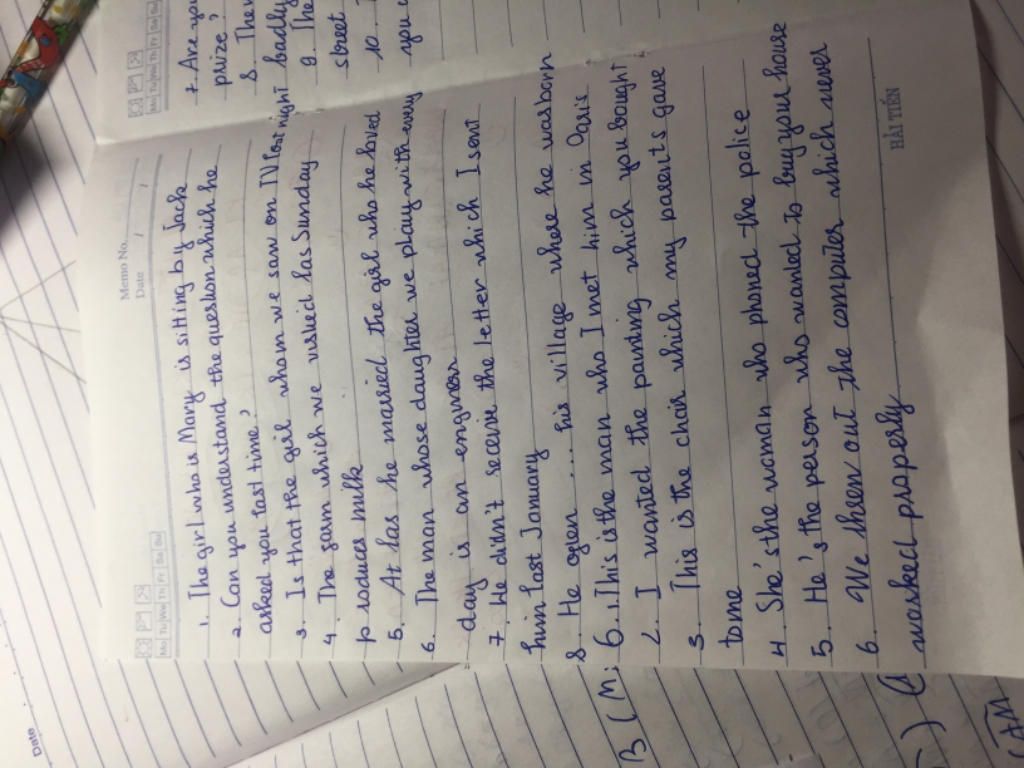 Memo No.
Date / /
Mo Tu We Th Fr Sa Su
1. The girl who is Mary is sitting by Jack
2. Can you understand the question which he
asked you last time?
3. Is that the girl whom we saw on TV last night
4. The farm which we visited has Sunday
produces milk
5. At has he married the girl who he loved
6. The man whose daughter we play with evay
day is an engineer
7. He didn't receive the letter which I sent
him last January
8. He ofen .... his village where he was born
6. 1. This is the man who I met him in Paris
2. I wanted the panting which you bought
3. This is the chair which my parents gave
to me
4. She's the woman who phoned the police
5. He's the person who wanted to buy your house
6. We theen out the computer which never
worked properly
HẢI TIẾN
7. Are you
prize?
8. The
badly
9. The
street
10.
you
Mo Tu We Th Fr Sa Su
Date
B (M: